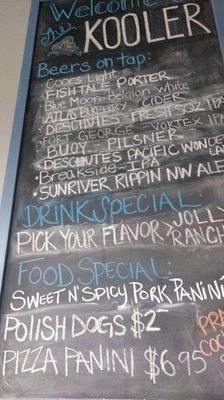 Welcome to
The
KOOLER
Beers on tap:
- Coors Light
- FISH TALE PORTER
- Blue Moon - Belgian White
- ATLAS BLKBERRY CIDER
- DESCHUTES FRESH SQ IPA
- FORT GEORGE VORTEX IPA
- BUOY - PILSNER
- DESCHUTES PACIFIC WONDERLAND
- Breakside - IPA
- SUNRIVER RIPPIN NW ALE
DRINK SPECIAL:
PICK YOUR FLAVOR - JOLLY RANCH
FOOD SPECIAL:
SWEET N' SPICY PORK PANINI
POLISH DOGS $2
PIZZA PANINI $6.95